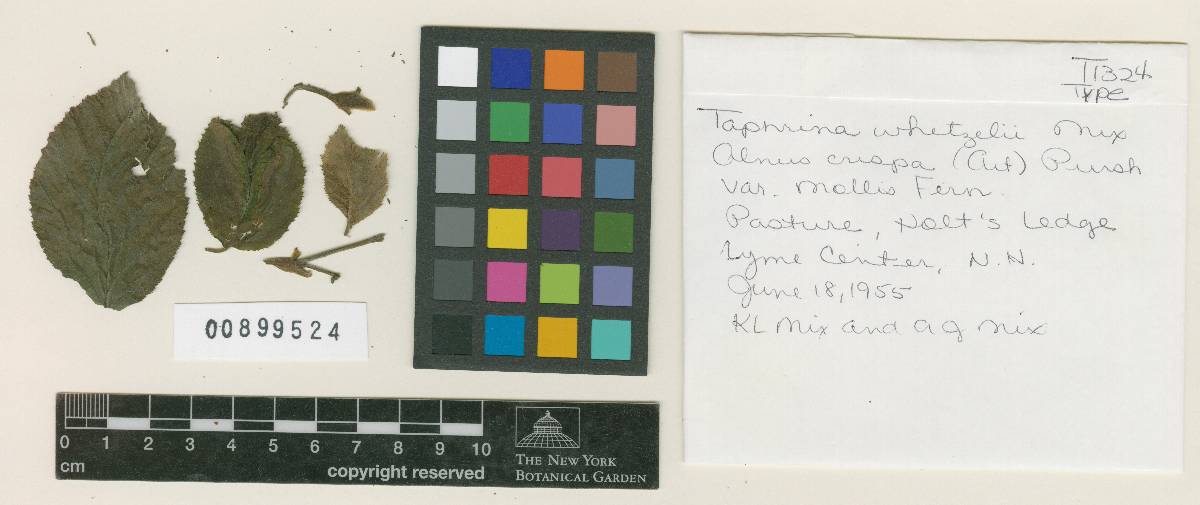 T1324
Type
Taphrina whetzelii Mix
Alnus crispa (Ait) Pursh
var. mollis Fern.
Pasture, Holt's Ledge
Lyme Center, N.H.
June 18, 1955
KL Mix and AJ Mix
00899524
0 1 2 3 4 5 6 7 8 9 10
cm
copyright reserved
THE NEW YORK
BOTANICAL GARDEN